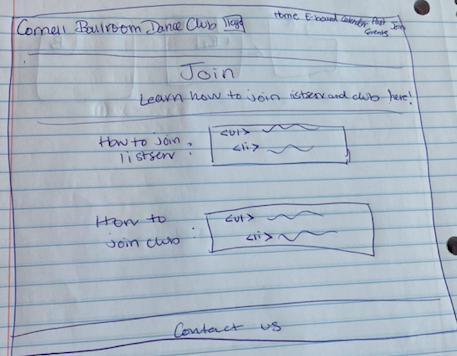 Cornell Ballroom Dance Club logo
Home E-board Calendar Past Events Join
Join
Learn how to join listserv and club here!
How to join
listserv :
<ul>
<li>
How to
join club :
<ul>
<li>
Contact us